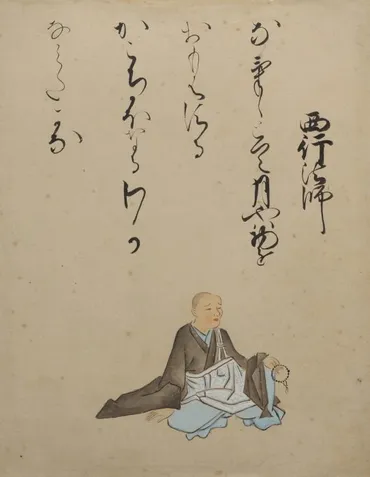 西行法師
なけけとて月やは物を
おもはする
かこちかほなるわか
なみたかな